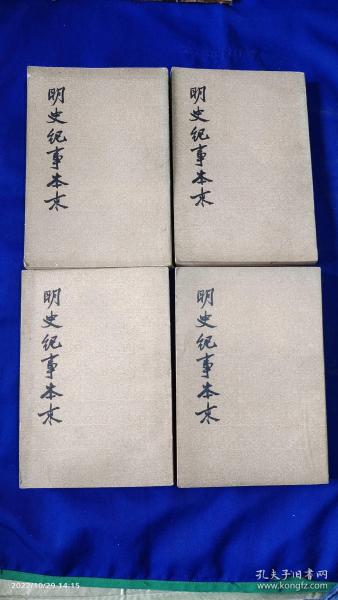 明史纪事本末
明史纪事本末
明史纪事本末
明史纪事本末
2022/10/29 14:15
孔夫子旧书网
www.kongfz.com